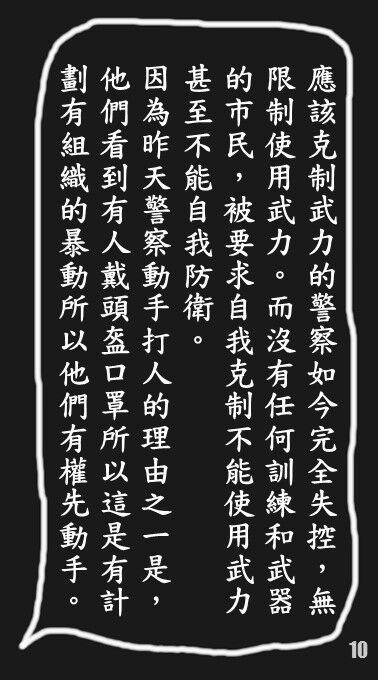 應該克制武力的警察如今完全失控，無
限制使用武力。而沒有任何訓練和武器
的市民，被要求自我克制不能使用武力
甚至不能自我防衛。
因為昨天警察動手打人的理由之一是，
他們看到有人戴頭盔口罩所以這是有計
劃有組織的暴動所以他們有權先動手。
10